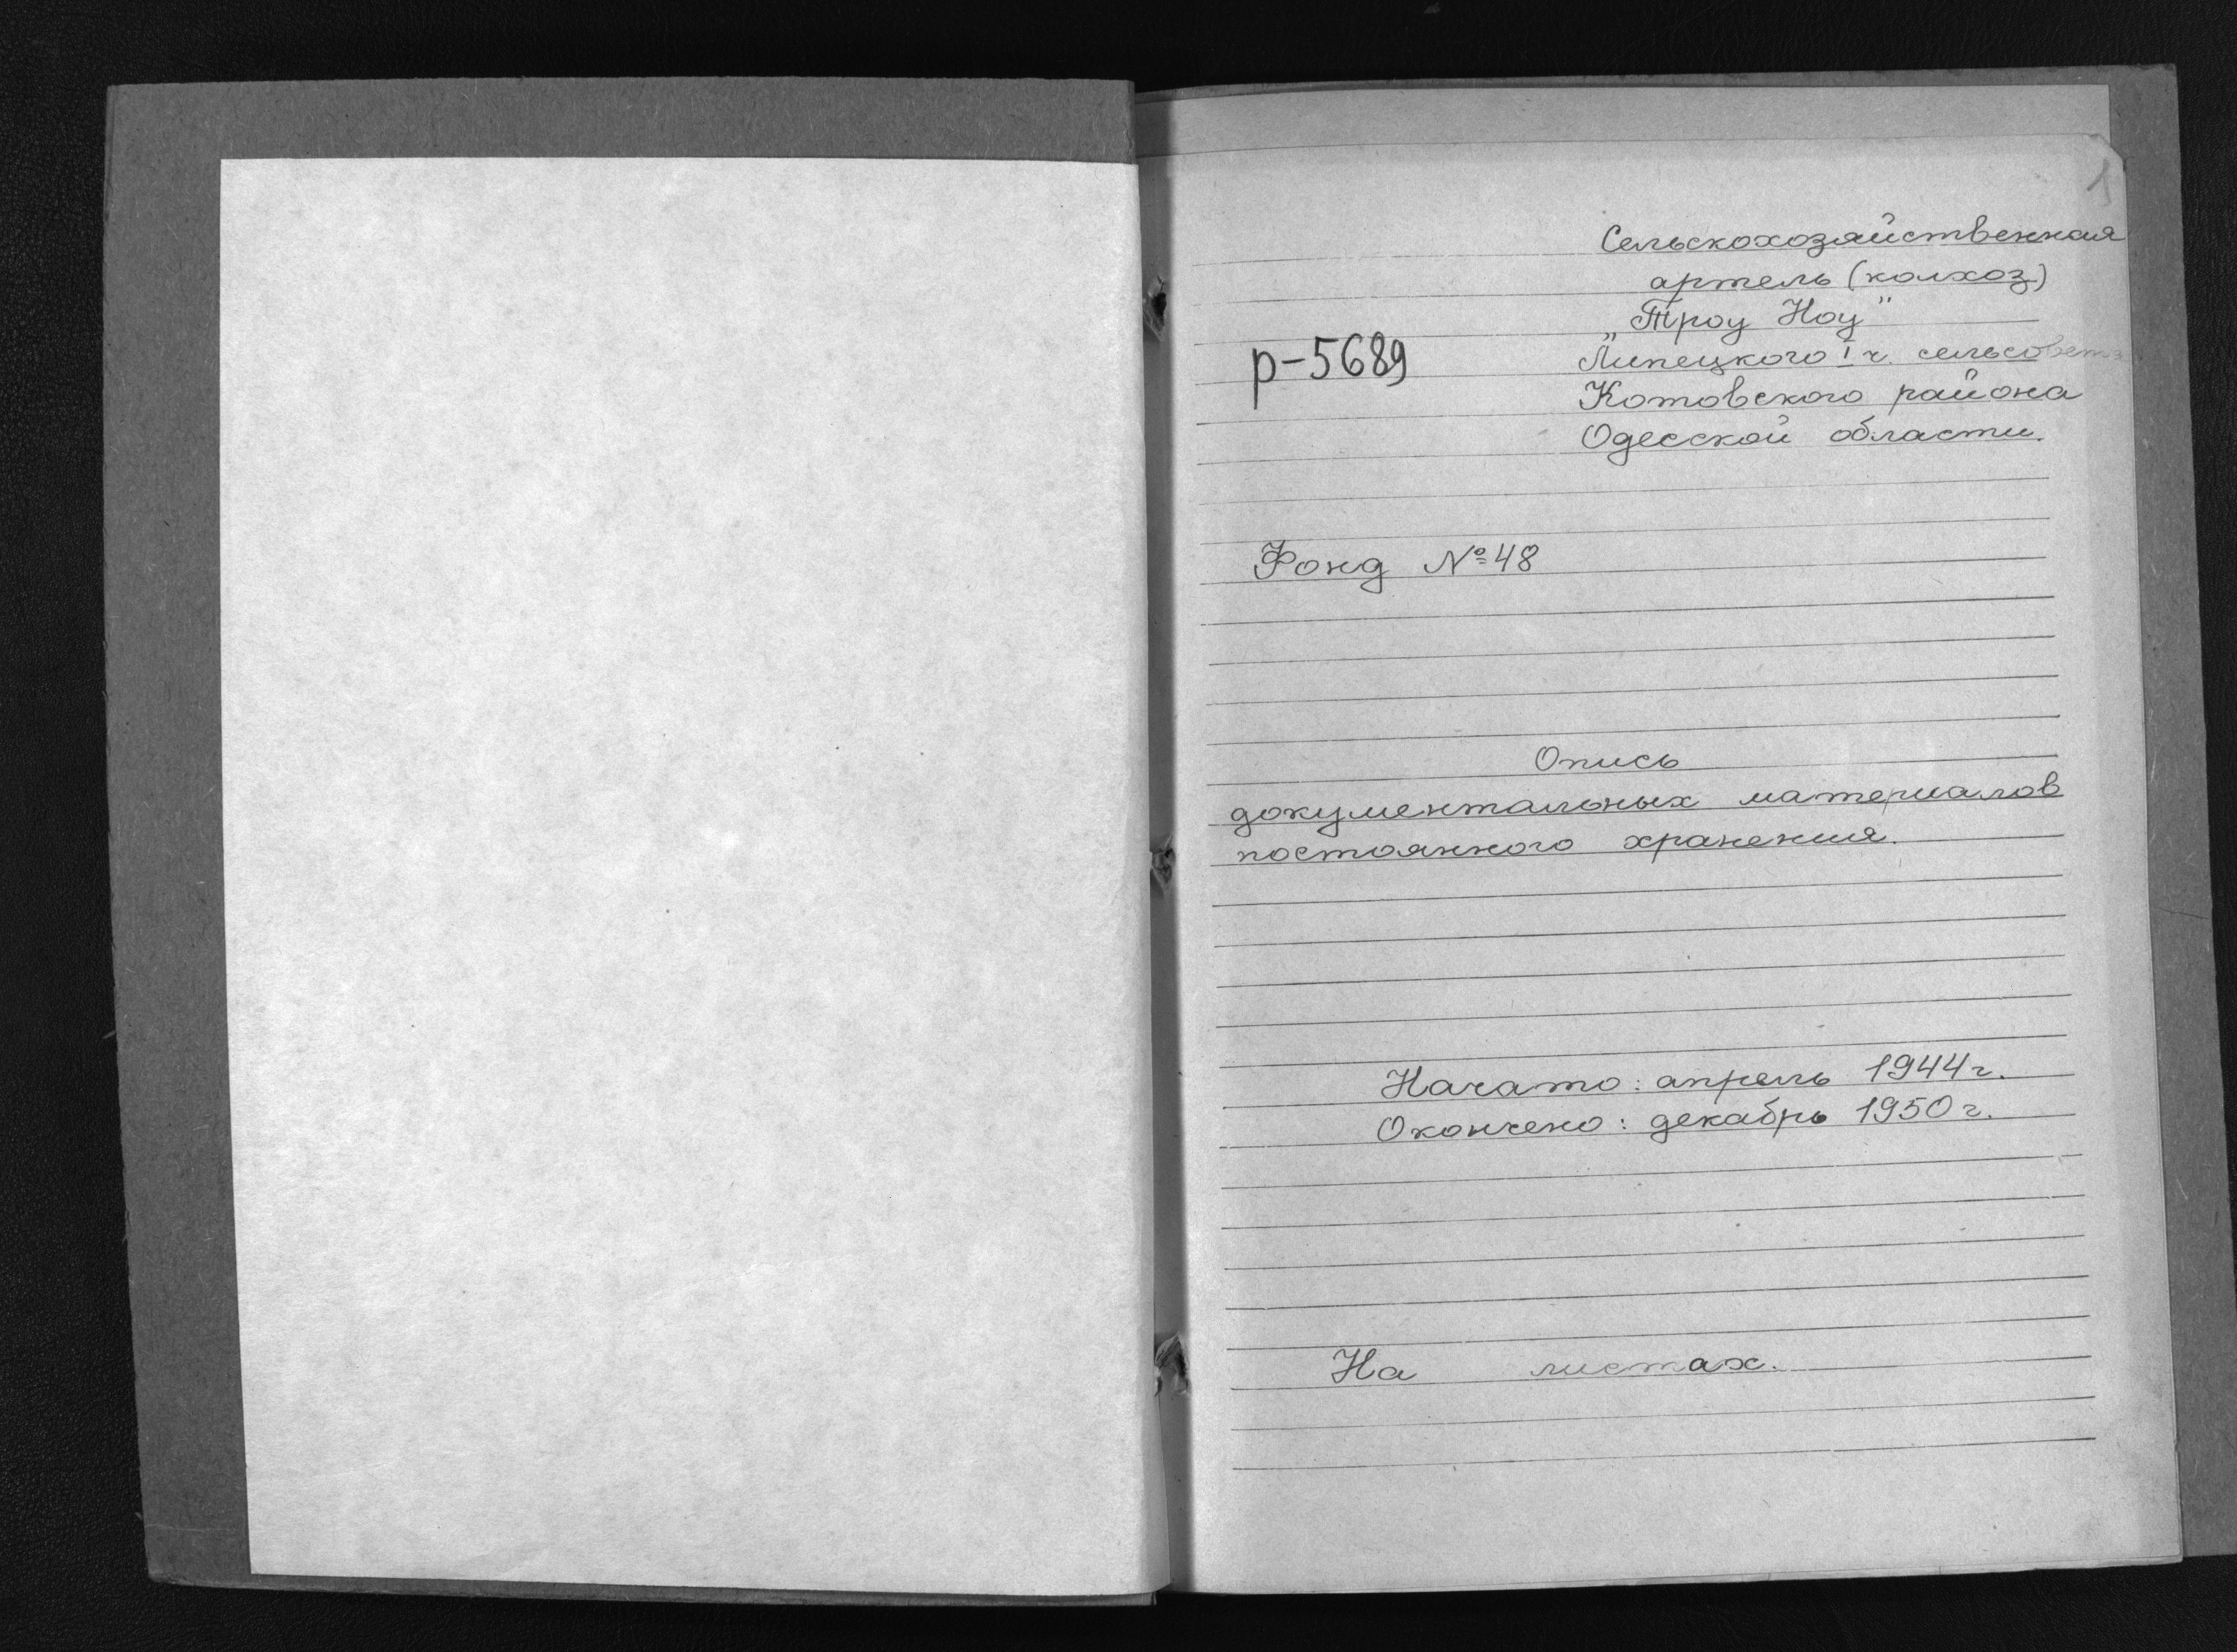 1
Сельскохозяйственная
артель (колхоз)
„Троу Ноу"
р-5689
Липецкого I ч. сельсовета
Котовского района
Одесской области.
Фонд №48
Опись
документальных материалов
постоянного хранения.
Начато: апрель 1944г.
Окончено: декабрь 1950г.
На листах.